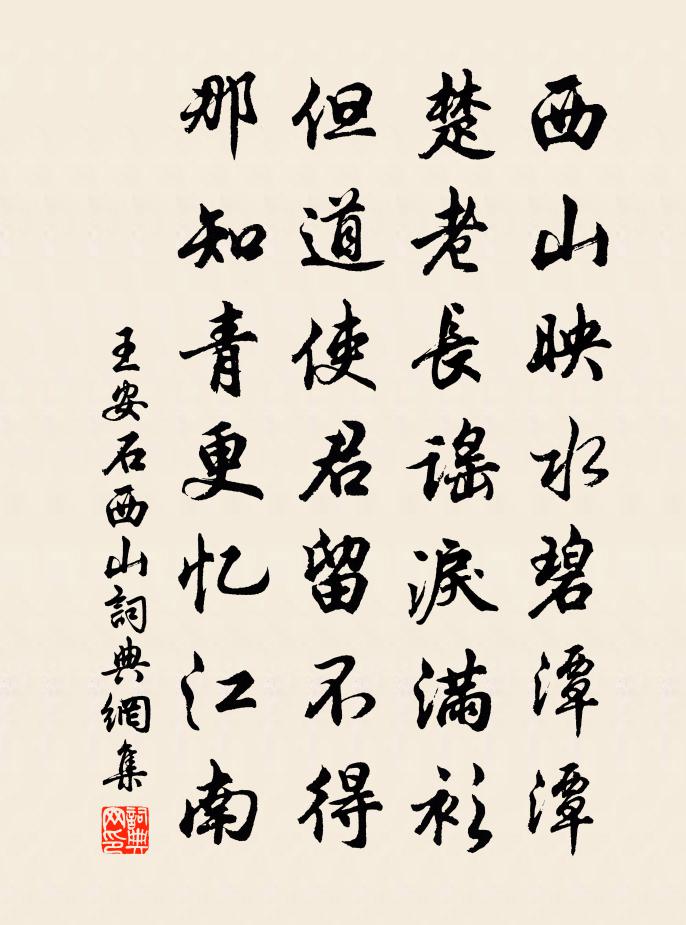 西山映水碧潭潭
楚老長謡淚满衫
但道使君留不得
那知青更忆江南
王安石西山詞典網集
詞典网印